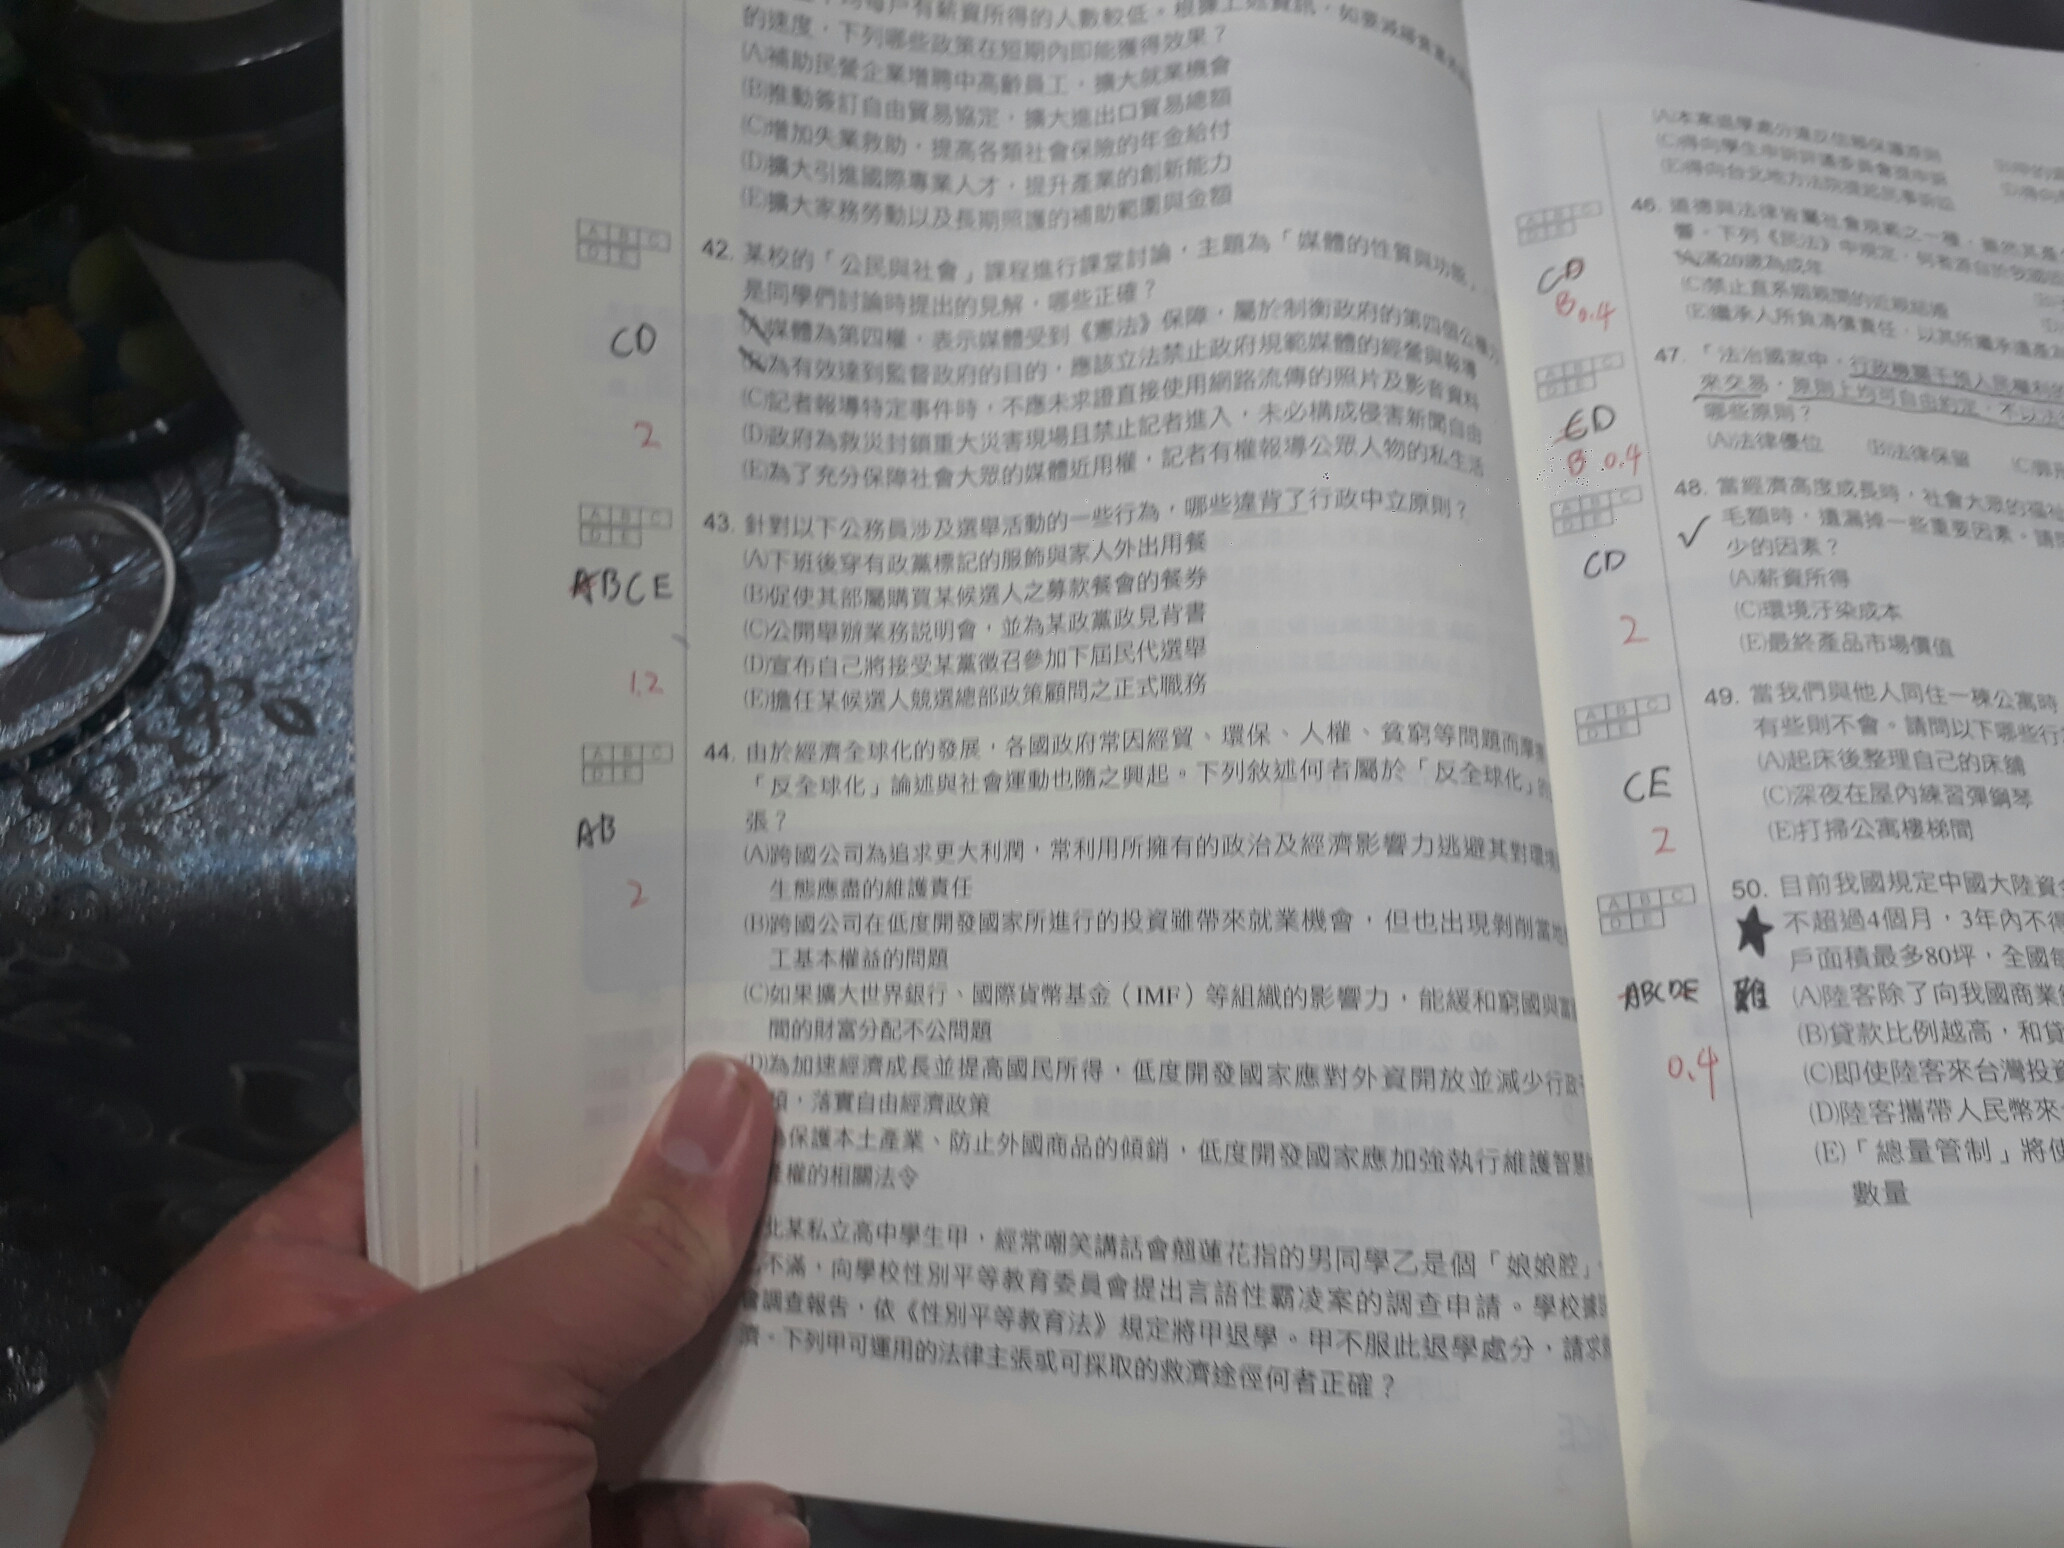 的速度，下列哪些政策在短期內即能獲得效果？
(A)補助民營企業增聘中高齡員工，擴大就業機會
(B)推動簽訂自由貿易協定，擴大進出口貿易總額
(C)增加失業救助，提高各類社會保險的年金給付
(D)擴大引進國際專業人才，提升產業的創新能力
(E)擴大家務勞動以及長期照護的補助範圍與金額
A B C
D E
CD
2
42. 某校的「公民與社會」課程進行課堂討論，主題為「媒體的性質與功能」
是同學們討論時提出的見解，哪些正確？
(A)媒體為第四權，表示媒體受到《憲法》保障，屬於制衡政府的第四個公權
(B)為有效達到監督政府的目的，應該立法禁止政府規範媒體的經營與報導
(C)記者報導特定事件時，不應未求證直接使用網路流傳的照片及影音資料
(D)政府為救災封鎖重大災害現場且禁止記者進入，未必構成侵害新聞自由
(E)為了充分保障社會大眾的媒體近用權，記者有權報導公眾人物的私生活
A B C
D E
ABCE
1.2
43. 針對以下公務員涉及選舉活動的一些行為，哪些違背了行政中立原則？
(A)下班後穿有政黨標記的服飾與家人外出用餐
(B)促使其部屬購買某候選人之募款餐會的餐券
(C)公開舉辦業務說明會，並為某政黨政見背書
(D)宣布自己將接受某黨徵召參加下屆民代選舉
(E)擔任某候選人競選總部政策顧問之正式職務
A B C
D E
AB
2
44. 由於經濟全球化的發展，各國政府常因經貿、環保、人權、貧窮等問題而
「反全球化」論述與社會運動也隨之興起。下列敘述何者屬於「反全球化」
張？
(A)跨國公司為追求更大利潤，常利用所擁有的政治及經濟影響力逃避其對環
生態應盡的維護責任
(B)跨國公司在低度開發國家所進行的投資雖帶來就業機會，但也出現剝削當
工基本權益的問題
(C)如果擴大世界銀行、國際貨幣基金（IMF）等組織的影響力，能緩和窮國與富
間的財富分配不公問題
(D)為加速經濟成長並提高國民所得，低度開發國家應對外資開放並減少行政
，落實自由經濟政策
保護本土產業、防止外國商品的傾銷，低度開發國家應加強執行維護智慧
權的相關法令
北某私立高中學生甲，經常嘲笑講話會翹蓮花指的男同學乙是個「娘娘腔」
不滿，向學校性別平等教育委員會提出言語性霸凌案的調查申請。學校據
會調查報告，依《性別平等教育法》規定將甲退學。甲不服此退學處分，請求
濟。下列甲可運用的法律主張或可採取的救濟途徑何者正確？
(A)本案退學處分違反信賴保護原則
(C)得向學生申訴評議委員會提申訴
(E)得向台北地方法院提起民事訴訟
A B C
D E
CD
B 0.4
46. 道德與法律皆屬社會規範之一種，雖然其產
響。下列《民法》中規定，何者源自於我國
(A)滿20歲為成年
(C)禁止直系姻親間的近親結婚
(E)繼承人所負清償責任，以其所繼承遺產為
A B C
D E
ED
B 0.4
47. 「法治國家中，行政機關干預人民權利的
來交易，原則上均可自由約定，不以法
哪些原則？
(A)法律優位 (B)法律保留
A B C
D E
CD
2
48. 當經濟高度成長時，社會大眾的福祉
毛額時，遺漏掉一些重要因素。請問
少的因素？
(A)薪資所得
(C)環境汙染成本
(E)最終產品市場價值
A B C
D E
CE
2
49. 當我們與他人同住一棟公寓時
有些則不會。請問以下哪些行
(A)起床後整理自己的床舖
(C)深夜在屋內練習彈鋼琴
(E)打掃公寓樓梯間
A B C
D E
ABCDE
0.4
難
50. 目前我國規定中國大陸資金
不超過4個月，3年內不得
戶面積最多80坪，全國每
(A)陸客除了向我國商業
(B)貸款比例越高，和貸
(C)即使陸客來台灣投資
(D)陸客攜帶人民幣來
(E)「總量管制」將使
數量